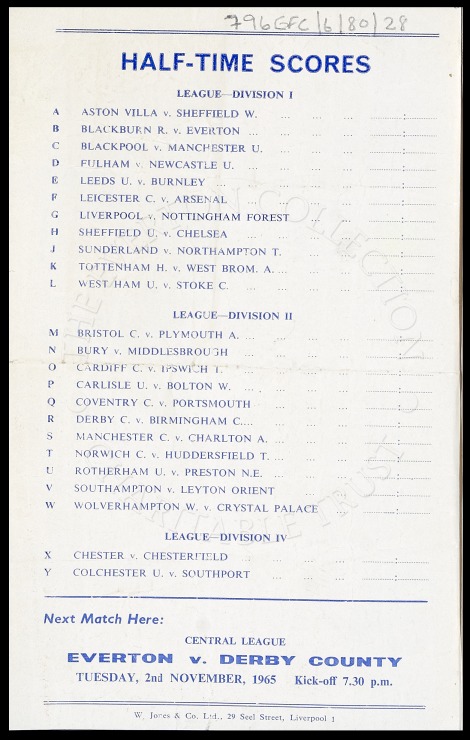 796EFC/6/80/28
HALF-TIME SCORES
LEAGUE—DIVISION I
A ASTON VILLA v. SHEFFIELD W. ... ... ...
B BLACKBURN R. v. EVERTON ... ... ... ...
C BLACKPOOL v. MANCHESTER U. ... ... ...
D FULHAM v. NEWCASTLE U. ... ... ...
E LEEDS U. v. BURNLEY ... ... ... ...
F LEICESTER C. v. ARSENAL ... ... ...
G LIVERPOOL v. NOTTINGHAM FOREST ... ...
H SHEFFIELD U. v. CHELSEA ... ... ...
J SUNDERLAND v. NORTHAMPTON T. ... ...
K TOTTENHAM H. v. WEST BROM. A. ... ... ...
L WEST HAM U. v. STOKE C. ... ... ...
LEAGUE—DIVISION II
M BRISTOL C. v. PLYMOUTH A. ... ... ...
N BURY v. MIDDLESBROUGH ... ... ...
O CARDIFF C. v. IPSWICH T. ... ... ...
P CARLISLE U. v. BOLTON W. ... ... ...
Q COVENTRY C. v. PORTSMOUTH ... ... ...
R DERBY C. v. BIRMINGHAM C.... ... ...
S MANCHESTER C. v. CHARLTON A. ... ... ...
T NORWICH C. v. HUDDERSFIELD T. ... ... ...
U ROTHERHAM U. v. PRESTON N.E. ... ... ...
V SOUTHAMPTON v. LEYTON ORIENT ... ...
W WOLVERHAMPTON W. v. CRYSTAL PALACE ...
LEAGUE—DIVISION IV
X CHESTER v. CHESTERFIELD ... ... ...
Y COLCHESTER U. v. SOUTHPORT ... ... ...
Next Match Here:
CENTRAL LEAGUE
EVERTON v. DERBY COUNTY
TUESDAY, 2nd NOVEMBER, 1965 Kick-off 7.30 p.m.
W. Jones & Co. Ltd., 29 Seel Street, Liverpool 1